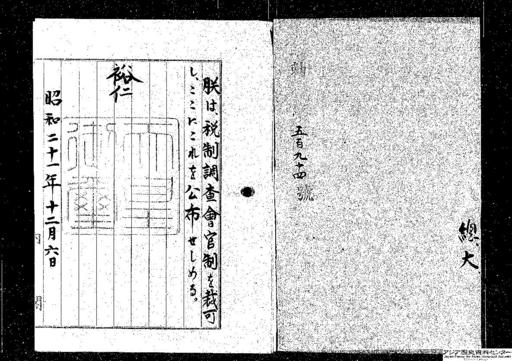 勅
五百九十四號
總
大
朕は、税制調査會官制を裁可
し、ここにこれを公布せしめる。
裕仁
昭和二十一年十二月六日
アジア歴史資料センター